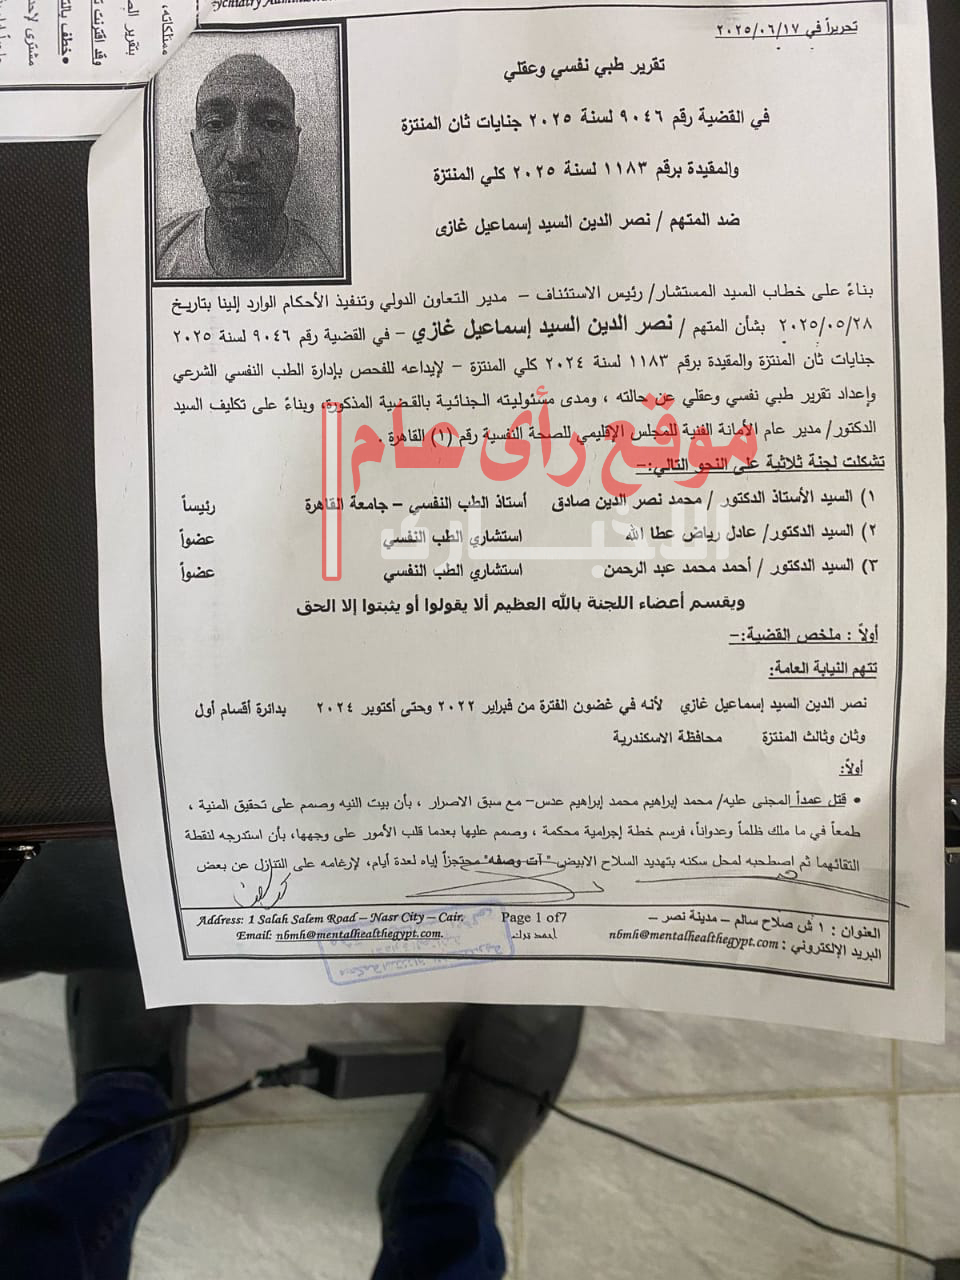 تحريراً في ٢٠٢٥/٠٦/١٧
تقرير طبي نفسي وعقلي
في القضية رقم ٩٠٤٦ لسنة ٢٠٢٥ جنايات ثان المنتزة
والمقيدة برقم ١١٨٣ لسنة ٢٠٢٥ كلي المنتزة
ضد المتهم / نصر الدين السيد إسماعيل غازى
بناءً على خطاب السيد المستشار/ رئيس الاستئناف – مدير التعاون الدولي وتنفيذ الأحكام الوارد إلينا بتاريخ
٢٠٢٥/٠٥/٢٨ بشأن المتهم / نصر الدين السيد إسماعيل غازي – في القضية رقم ٩٠٤٦ لسنة ٢٠٢٥
جنايات ثان المنتزة والمقيدة برقم ١١٨٣ لسنة ٢٠٢٤ كلي المنتزة – لإيداعه للفحص بإدارة الطب النفسي الشرعي
وإعداد تقرير طبي نفسي وعقلي عن حالته ، ومدى مسئوليته الجنائية بالقضية المذكورة، وبناءً على تكليف السيد
الدكتور/ مدير عام الأمانة الفنية للمجلس الإقليمي للصحة النفسية رقم (١) القاهرة .
موقع رأى عام
الاخبارى
تشكلت لجنة ثلاثية على النحو التالي:-
١) السيد الأستاذ الدكتور / محمد نصر الدين صادق أستاذ الطب النفسي – جامعة القاهرة رئيساً
٢) السيد الدكتور/ عادل رياض عطا الله استشاري الطب النفسي عضواً
٣) السيد الدكتور / أحمد محمد عبد الرحمن استشاري الطب النفسي عضواً
ويقسم أعضاء اللجنة بالله العظيم ألا يقولوا أو يثبتوا إلا الحق
أولاً : ملخص القضية:-
تتهم النيابة العامة:
نصر الدين السيد إسماعيل غازي لأنه في غضون الفترة من فبراير ٢٠٢٢ وحتى أكتوبر ٢٠٢٤ بدائرة أقسام أول
وثان وثالث المنتزة محافظة الاسكندرية
أولاً:
• قتل عمداً المجنى عليه/ محمد إبراهيم محمد إبراهيم عدس– مع سبق الاصرار ، بأن بيت النيه وصمم على تحقيق المنية ،
طمعاً في ما ملك ظلماً وعدواناً، فرسم خطة إجرامية محكمة ، وصمم عليها بعدما قلب الأمور على وجهها، بأن استدرجه لنقطة
التقائهما ثم اصطحبه لمحل سكنه بتهديد السلاح الابيض "آت وصفه" محتجزاً إياه لعدة أيام، لإرغامه على التنازل عن بعض
العنوان : ١ ش صلاح سالم – مدينة نصر –
البريد الإلكتروني : nbmh@mentalhealthegypt.com
Page 1 of7
Address: 1 Salah Salem Road – Nasr City – Cair.
Email: nbmh@mentalhealthegypt.com.
ممتلكاته،
بتقرير
وقد اقترنت